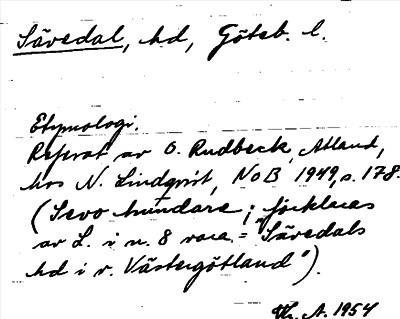 Sävedal, hd, Göteb. l.
Etymologi.
Referat av O. Rudbeck, Atland,
hos N. Lindqvist, NoB 1949, s. 178.
(Sevo hundare; förklaras
av L. i n. 8 vara = "Sävedals
hd i v. Västergötland").
A. 1954